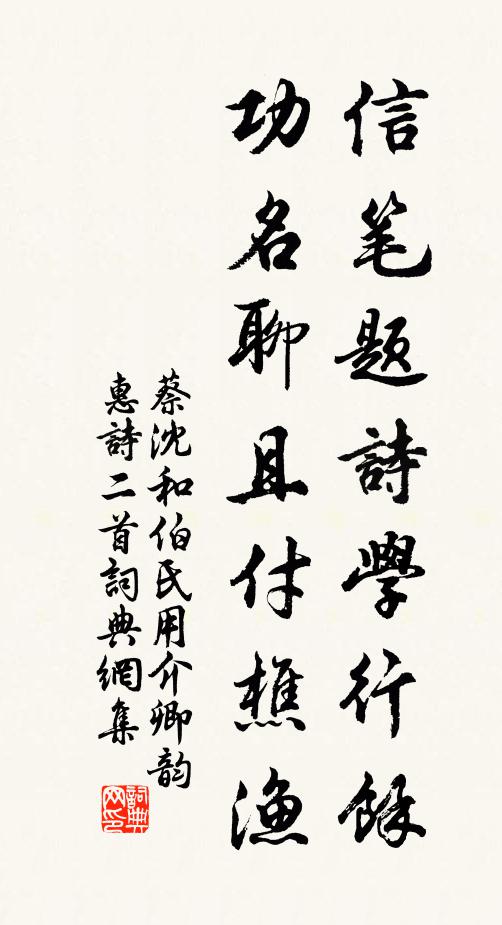 信笔题詩學行餘
功名聊且付樵漁
蔡沈和伯氏用介卿韵
惠詩二首詞典網集
詞典
网印